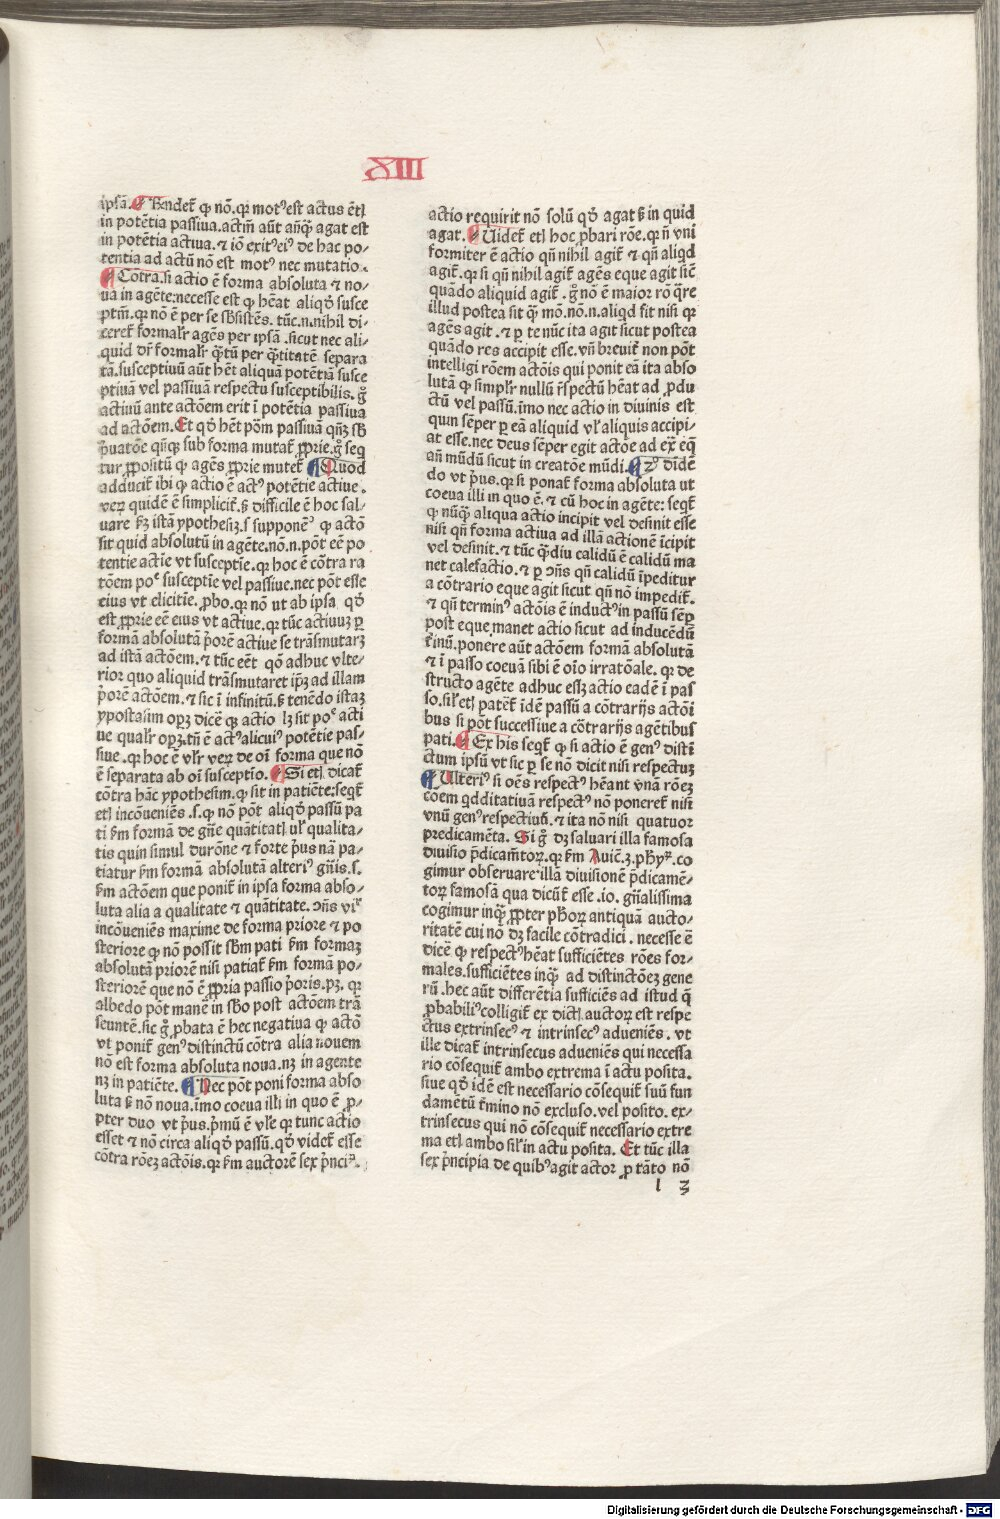 XIII
ipsã. Rñdet᷑ ꝙ nõ. qꝛ motꝰ est actus ẽtꝭ
in potẽtia passiua. actiũ aũt añꝙ̃ agat est
in potẽtia actiua. ⁊ iõ exitꝰ eiꝰ de hac po⸗
tentia ad actũ nõ est motꝰ nec mutatio.
Cõtra. si actio ẽ forma absoluta ⁊ no⸗
ua in agẽte: necesse est ꝙ hẽat aliqđ susce
ptiũ. qꝛ nõ ẽ per se sb̃sistẽs. tũc. n. nihil di⸗
ceret᷑ formalr̃ agẽs per ipsã. sicut nec ali⸗
quid dr̃ formalr̃ q̃tũ per q̃titatẽ separa
tã. susceptiuũ aũt hẽt aliquã potẽtiã susce
ptiuã vel passiuã respectu susceptibilis. g̊
actiuũ ante actõem erit ĩ potẽtia passiua
ad actõem. Et qđ hẽt põm passiuã qñꝫ sb̃
p̃uatõe qñꝙ sub forma mutat᷑ ꝓprie. g̊ seq
tur ꝓpositũ ꝙ agẽs ꝓprie mutet᷑ Quod
adducit᷑ ibi ꝙ actio ẽ actꝰ potẽtie actiue.
veꝝ quidẽ ẽ simplicit᷑. sꝫ difficile ẽ hoc sal⸗
uare ẜm istã ypothesiꝫ. s. supponẽꝰ ꝙ actõ
sit quid absolutũ in agẽte. nõ. n. põt eẽ po
tentie actiẽ vt susceptie. qꝛ hoc ẽ cõtra ra
tõem poᵉ susceptiẽ vel passiue. nec põt esse
eius vt elicitiẽ. ꝓbo. qꝛ nõ ut ab ipsa qđ
est ꝓprie eẽ eius vt actiue. qꝛ tũc actiuuꝫ ꝑ
formã absolutã p̃orẽ actiue se trãsmutaꝫ
ad istã actõem. ⁊ tũc eẽt qõ adhuc vlte⸗
rior quo aliquid trãsmutaret ip̃ꝫ ad illam
p̃orẽ actõem. ⁊ sic ĩ infinitũ. sꝫ tenẽdo istaꝫ
ypostasim opꝫ dicẽ ꝙ actio lꝫ sit poᵉ acti
ue qualr̃ opꝫ. tñ ẽ actꝰ alicuiꝰ potẽtie pas⸗
siue. qꝛ hoc ẽ vlr̃ veꝝ de oĩ forma que nõ
ẽ separata ab oĩ susceptio. Si etꝭ dicat᷑
cõtra hãc ypothesim. ꝙ sit in patiẽte: seqt᷑
etꝭ incõueniẽs. s. ꝙ nõ põt aliqđ passũ pa
ti ẜm formã de gñe quãtitatꝭ ul̃ qualita⸗
tis quin simul durõne ⁊ forte p̃us nã pa⸗
tiatur ẜm formã absolutã alteriꝰ gñis. s.
ẜm actõem que ponit᷑ in ipsa forma abso⸗
luta alia a qualitate ⁊ quãtitate. ↄñs vr̃
incõueniẽs maxime de forma priore ⁊ po
steriore ꝙ nõ possit sb̃m pati ẜm formaꝫ
absolutã priorẽ nisi patiat᷑ ẜm formã po⸗
steriorẽ que nõ ẽ ꝓpria passio p̃oris. pꝫ. qꝛ
albedo põt manẽ in sb̃o post actõem trã
seuntẽ. sic g̊ ꝓbata ẽ hec negatiua ꝙ actõ
vt ponit᷑ genꝰ distinctũ cõtra alia nouem
nõ est forma absoluta noua. nꝫ in agente
nꝫ in patiẽte. Nec põt poni forma abso
luta sꝫ nõ noua. ĩmo coeua illi in quo ẽ ꝓ⸗
pter duo vt p̃us. p̃mũ ẽ vl̃e ꝙ tunc actio
esset ⁊ nõ circa aliqđ passũ. qđ videt᷑ esse
cõtra rõeꝫ actõis. qꝛ ẜm auctorẽ sex p̃nciꝝ.
actio requirit nõ solũ qđ agat sꝫ in quid
agat. Uidet᷑ etꝭ hoc ꝓbari rõe. ꝙ ñ vni
formiter ẽ actio qñ nihil agit᷑ ⁊ qñ aliqd
agit᷑. qꝛ si qñ nihil agit᷑ agẽs eque agit sic̃
quãdo aliquid agit᷑. g̊ nõ ẽ maior rõ q̃re
illud postea sit ꝙ̃ mõ. nõ. n. aliqd fit nisi qꝛ
agẽs agit. ⁊ ꝑ te nũc ita agit sicut postea
quãdo res accipit esse. vñ breuit᷑ non põt
intelligi rõem actõis qui ponit eã ita abso
lutã ꝙ simplr̃ nullũ r̃spectũ hẽat ad ꝓdu
ctũ vel passũ. ĩmo nec actio in diuinis est
quin sẽper ꝑ eã aliquid vl̃ aliquis accipi⸗
at esse. nec deus sẽper egit actõe ad ex̃ eq̃
añ mũdũ sicut in creatõe mũdi. 2ꝰ didẽ
do vt p̃us. qꝛ si ponat᷑ forma absoluta ut
coeua illi in quo ẽ. ⁊ cũ hoc in agẽte: seqt᷑
ꝙ nũꝙ̃ aliqua actio incipit vel desinit esse
nisi qñ forma actiua ad illã actionẽ ĩcipit
vel desinit. ⁊ tũc q̃diu calidũ ẽ calidũ ma
net calefactio. ⁊ ꝑ ↄñs qñ calidũ ĩpeditur
a cõtrario eque agit sicut qñ nõ impedit᷑.
⁊ qñ terminꝰ actõis ẽ inductꝰ in passũ sẽꝑ
post eque manet actio sicut ad inducẽdũ
t᷑inũ. ponere aũt actõem formã absolutã
⁊ ĩ passo coeuã sibi ẽ oĩo irratõale. qꝛ de
structo agẽte adhuc essꝫ actio eadẽ ĩ pas
so. sil̃r etꝭ patet᷑ idẽ passũ a cõtrarijs actõi
bus si põt successiue a cõtrarijs agẽtibus
pati. Ex his seqt᷑ ꝙ si actio ẽ genꝰ distĩ
ctum ipsũ vt sic ꝑ se nõ dicit nisi respectuꝫ
Ulteriꝰ si oẽs respectꝰ hẽant vnã rõeꝫ
cõem qdditatiuã respectꝰ nõ poneret᷑ nisi
vnũ genꝰ respectiuũ. ⁊ ita nõ nisi quatuor
predicamẽta. Si g̊ dꝫ saluari illa famosa
diuisio p̃dicam̃toꝝ. qꝛ ẜm Auic̃. 3. ph̃yꝝ. co
gimur obseruare illã diuisionẽ p̃dicamẽ⸗
toꝝ famosã qua dicũt᷑ esse .io. gñalissima
cogimur inqꝙ̃ ꝓpter ph̃oꝝ antiquã aucto⸗
ritatẽ cui nõ dꝫ facile cõtradici. necesse ẽ
dicẽ ꝙ respectꝰ hẽat sufficiẽtes rões for⸗
males. sufficiẽtes inqꝙ̃ ad distinctõeꝫ gene
rũ. hec aũt differẽtia sufficiẽs ad istud q̃
ꝓbabiliꝰ colligit᷑ ex dictꝭ auctoꝝ est respe
ctus extrinsecꝰ ⁊ intrinsecꝰ adueniẽs. vt
ille dicat᷑ intrinsecus adueniẽs qui necessa
rio cõsequit᷑ ambo extrema ĩ actu posita.
siue qđ idẽ est necessario cõsequit᷑ suũ fun
damẽtũ t᷑mino nõ excluso. vel posito. ex⸗
trinsecus qui nõ cõsequit᷑ necessario extre
ma etꝭ ambo sil̃ in actu posita. Et tũc illa
sex p̃ncipia de quibꝰ agit actor ꝑ tãto nõ
l 3
Digitalisierung gefördert durch die Deutsche Forschungsgemeinschaft - DFG